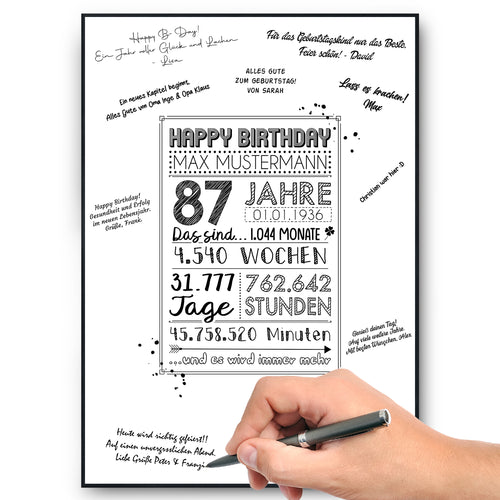 Happy B-Day!
Ein Jahr voller Glück und Lachen
- Lisa
Für das Geburtstagskind nur das Beste.
Feier schön! - David
ALLES GUTE
ZUM GEBURTSTAG!
VON SARAH
Ein neues Kapitel beginnt,
Alles Gute von Oma Inge & Opa Klaus
Lass es krachen!
Max
HAPPY BIRTHDAY
MAX MUSTERMANN
87 JAHRE
01.01.1936
Das sind... 1.044 MONATE
4.540 WOCHEN
31.777 Tage
762.642 STUNDEN
45.758.520 Minuten
...und es wird immer mehr
Happy Birthday!
Gesundheit und Erfolg
im neuen Lebensjahr.
Grüße, Frank.
Christian war hier :D
Genieß deinen Tag!
Auf viele weitere Jahre.
Mit besten Wünschen, Alex
Heute wird richtig gefeiert!!
Auf einen unvergesslichen Abend.
Liebe Grüße Peter & Franzi